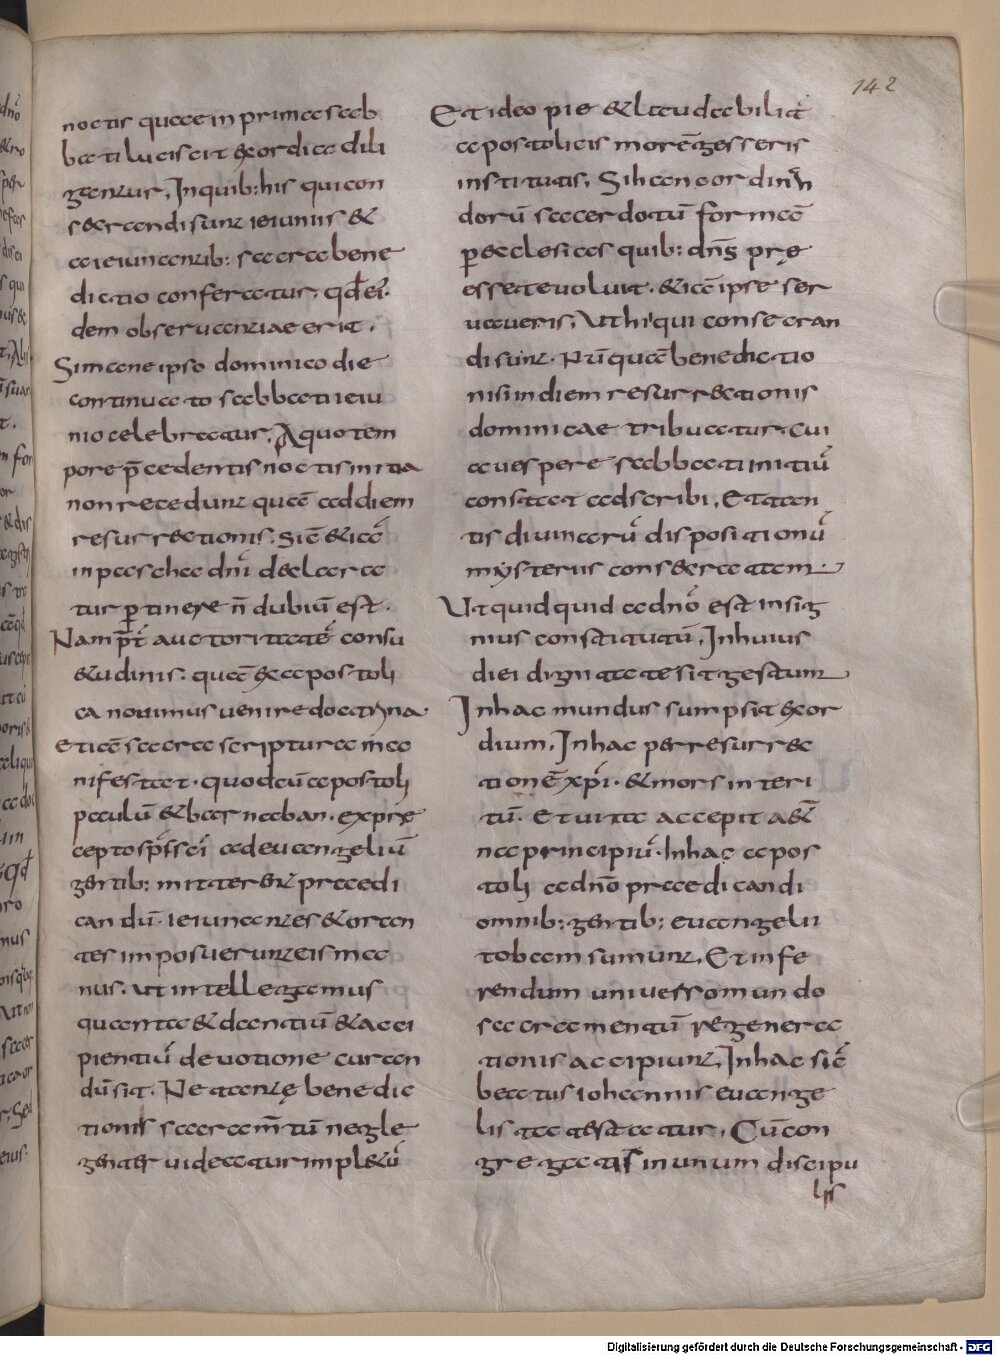 142
noctis quae in prima sab
bati luciscit exordia dili
gantur, Inquib: his qui con
secrandi sunt ieiuniis &
a ieiunantib: sacra bene
dictio conferatur, qđ ei'
dem obseruantiae erit,
Simane ipso dominico die
continuato sabbati ieiu
nio celebratur, Aquo tem
pore p̄cedentis noctis initia
non recedunt quā ad diem
resurrectionis, sic̄ &iā
in pascha dn̄i declara
tur ꝑtinere n̄ dubiū est.
Nam p̄t auctoritatē consu
&udinis: quā ex apostoli
ca nouimus uenire doctryna.
etiā sacra scriptura ma
nifestat. quod cū apostoli
paulū & barnaban. ex prę
cepto sp̄s sci ad euangeliū
gentib: mitterent praedi
candū. ieiunantes & oran
tes imposuerunt eis ma
nus. ut intellegamus
quanta & dantiū & acci
pientiū deuotione curan
dū sit. Ne tantę benedic
tionis sacram̄tū negle
genter uideatur impletū
Et ideo pie & laudabilit
apostolicis morē gesseris
institutis, Sihanc ordinan
dorū sacerdotū formā
ꝑ ecclesias quib: dn̄s prę
esse te uoluit. &iā ipse ser
uaueris, Ut hi' qui consecran
di sunt. Nūquā benedictio
nisi in diem resurrectionis
dominicae tribuatur. Cui
a uespere sabbati initiū
constat adscribi, Et tan
tis diuinarū dispositionū
mysteriis consecrata ē.
Ut quidquid a dn̄o est insig
nius constitutū, In huius
diei dignitate sit gestum
In hac mundus sumpsit exor
dium, In hac per resurrec
tionē xp̄i. & mors interi
tū. Et uita accepit aet̄
na principiū. In hac apos
toli a dn̄o praedicandi
omnib: gentib: euangelii
tobam sumunt, Et infe
rendum uniuerso mundo
sacramentū regenera
tionis accipiunt, In hac sic̄
beatus iohannis euange
lista testatur, Cū con
gregatis in unum discipu
lis
Digitalisierung gefördert durch die Deutsche Forschungsgemeinschaft - DFG